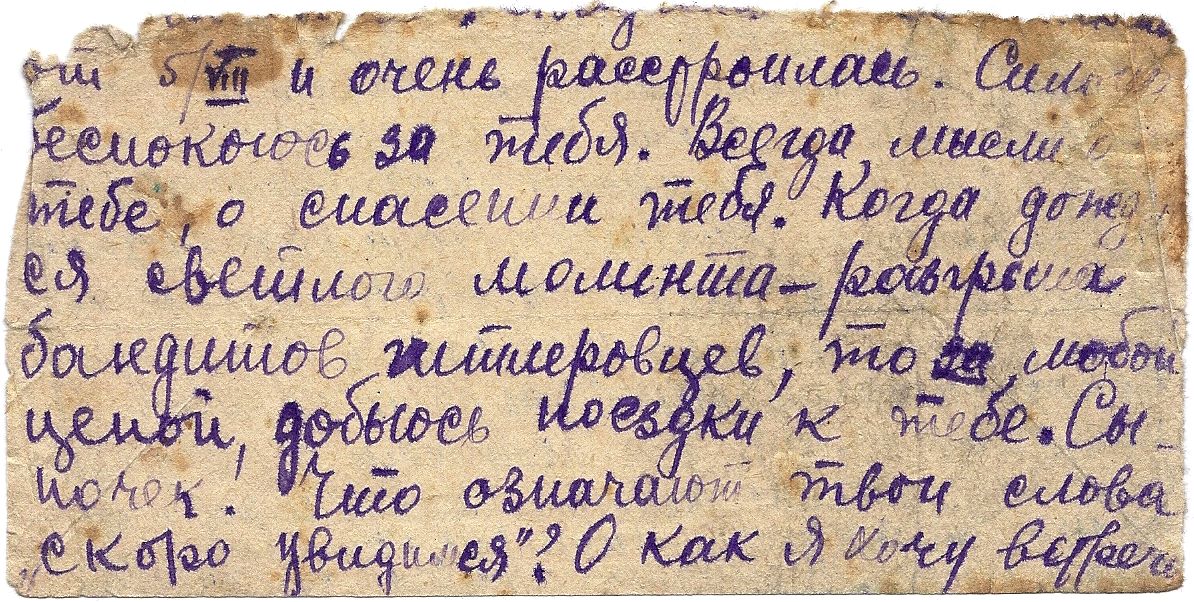 от 5/VIII и очень расстроилась. Сильно
беспокоюсь за тебя. Всегда мысли о
тебе, о спасении тебя. Когда дожду
ся светлого момента – разгрома
бандитов гитлеровцев, то за любой
ценой, добьюсь поездки к тебе. Сы-
ночек! Что означают твои слова
„скоро увидимся"? О как я хочу встречи